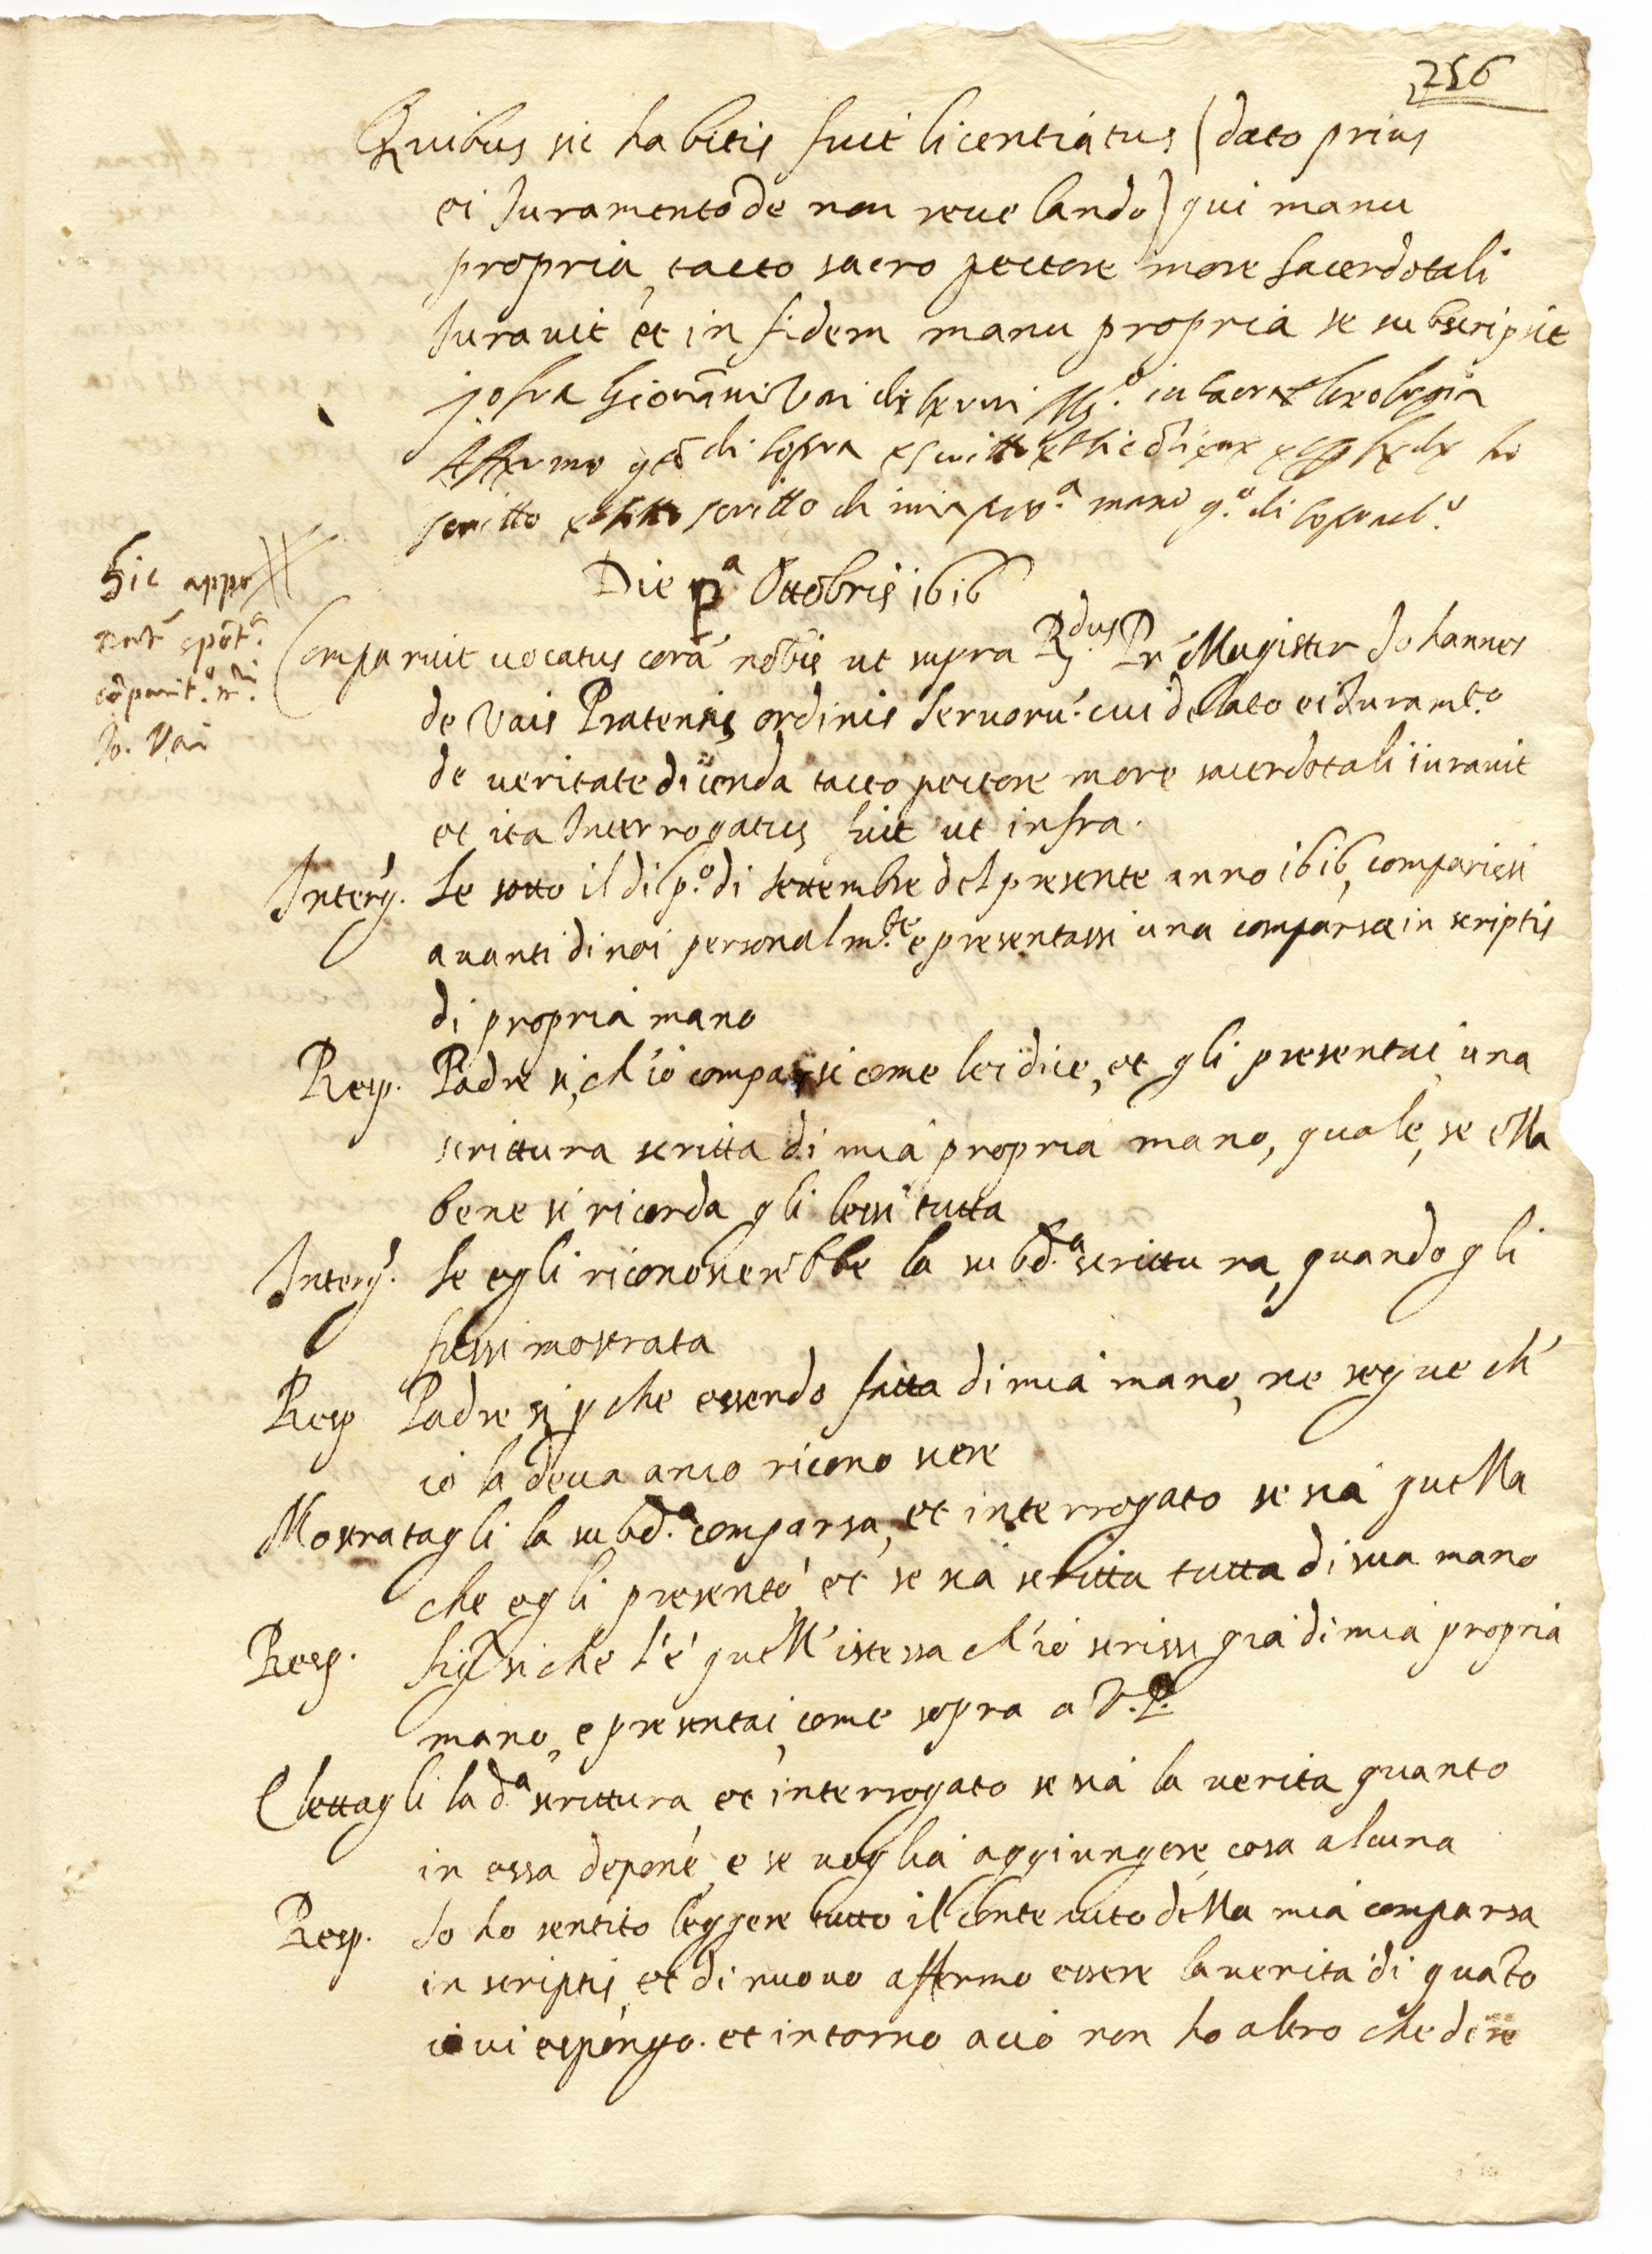 256
Quibus sic habitis fuit licentiatus (dato prius
ei Juramento de non reuelando) qui manu
propria, tacto sacro pectore more sacerdotali
Jurauit et in fidem manu propria se subscripsit
Jo fra Giouãni Vai de serui M.º in sacra theologia
Affermo qto di sopra ho
scritto scritto di mia pro.a mano q.o di sopra
Hic
Jo. Vai
Die p.a Ottobris 1616
Comparuit uocatus corã nobis ut supra R.dus Pr Magister Johannes
de Vais Pratensis ordinis seruorũ: cui delato ei Juram.to
de ueritate dicenda tacto pectore more sacerdotali iurauit
et ita Interrogatus fuit ut infra.
Interg. Se sotto il di p.o di settembre del presente anno 1616, comparissi
auanti di noi personalm.te e presentassi una comparsa in scriptis
di propria mano
Resp. Padre si, ch'io comparsi come lei dice, et gli presentai una
scrittura scritta di mia propria mano, quale, se ella
bene si ricorda gli lessi tutta
Interg. Se egli riconoscerebbe la subd.a scrittura, quando gli
fussi mostrata
Resp Padre si p che essendo fatta di mia mano, ne segue ch'
io la deua anco riconoscere
Mostratagli la subd.a comparsa, et interrogato se sia quella
che egli presentò et se sia scritta tutta di sua mano
Resp. sig.r si che l'è quell'istessa ch'io scrissi già di mia propria
mano, e presentai, come sopra a V.P.
E lettagli la d.a scrittura, et interrogato se sia la uerita quanto
in essa depone, e se uoglia aggiungere cosa alcuna
Resp. Io ho sentito leggere tutto il contenuto della mia comparsa
in scriptis, et di nuouo affermo essere la uerita di quãto
iui espongo. et intorno a ciò non ho altro che dire